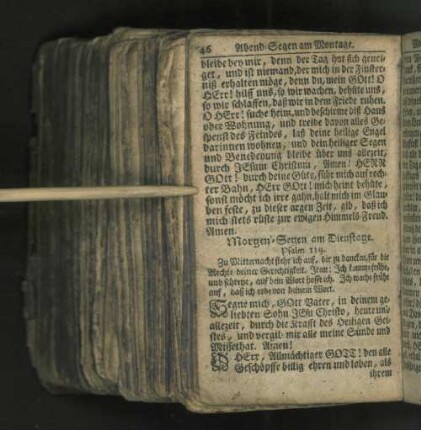 46 Abend-Segen am Montage.
bleibe bey mir, denn der Tag hat sich genei-
get, und ist niemand, der mich in der Finster-
niß erhalten möge, denn du, mein GOtt! O
HErr! hilff uns, so wir wachen, behüte uns,
so wir schlaffen, daß wir in dem Friede ruhen.
O HErr! suche heim, und beschirme diß Hauß
oder Wohnung, und treibe davon alles Ge-
spenst des Feindes, laß deine heilige Engel
darinnen wohnen, und dein heiliger Segen
und Benedeyung bleibe über uns allezeit,
durch JEsum Christum, Amen! HERR
GOtt! durch deine Güte, führ mich auf rech-
ter Bahn, HErr GOtt! mich heint behüte,
sonst möcht ich irre gahn, halt mich im Glau-
ben feste, zu dieser argen Zeit, gib, daß ich
mich stets rüste zur ewigen Himmels Freud.
Amen.
Morgen-Segen am Dienstage.
Psalm 119.
Zu Mitternacht stehe ich auf, dir zu dancken, für die
Rechte deiner Gerechtigkeit. Item: Ich komme frühe,
und schreye, auf dein Wort hoffe ich. Ich wache frühe
auf, daß ich rede von deinem Wort.
Segne mich, GOtt Vater, in deinem ge-
liebten Sohn JEsu Christo, heute und
allezeit, durch die Krafft des Heiligen Gei-
stes, und vergib mir alle meine Sünde und
Missethat. Amen!
O HErr, Allmächtiger GOTT! den alle
Geschöpffe billig ehren und loben, als
ihrem